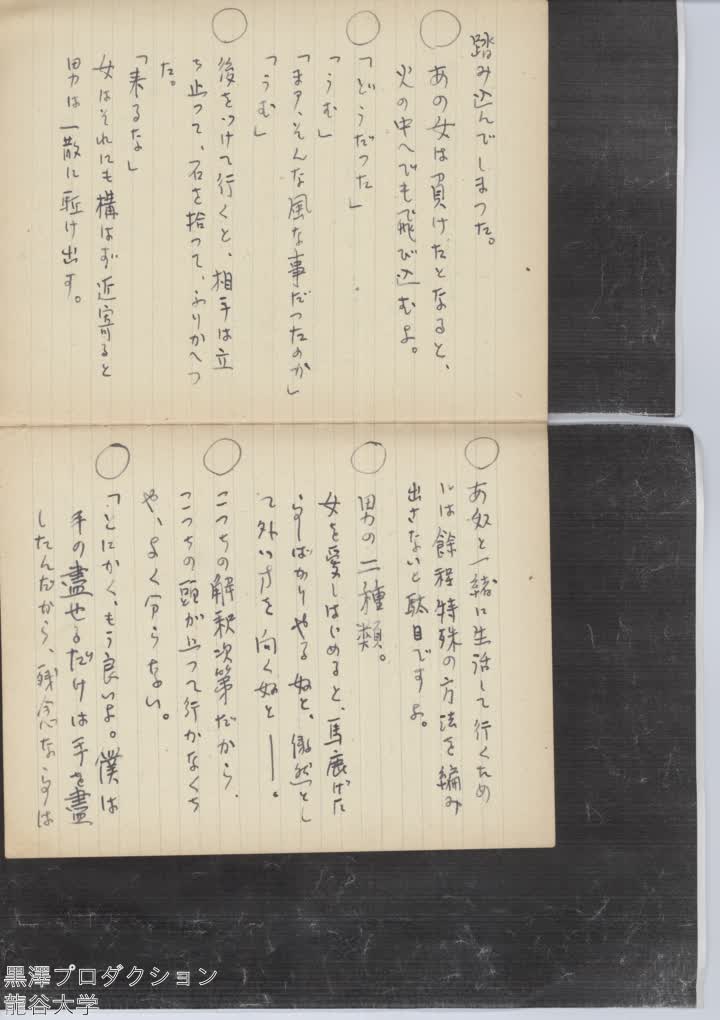 踏み込んでしまつた。
あの女は負けたとなると、
火の中へでも飛び込むよ。
「どうだつた」
「うむ」
「まア、そんな風な事だつたのか」
「うむ」
後をつけて行くと、相手は立
ち止つて、石を拾つて、ふりかへつ
た。
「来るな」
女はそれにも構はず近寄ると
男は一散に駈け出す。
あ奴と一緒に生活して行くため
には餘程特殊の方法を編み
出さないと駄目ですよ。
男の二種類。
女を愛しはじめると、馬鹿げた
ばかりやる奴と、傲然とし
て外い方を向く奴と――。
こつちの解釈次第だから、
こつちの頭が止つて行かなくち
や、よく分らない。
「とにかく、もう良いよ。僕は
手の盡せるだけは手を盡
したんだから、残念ならずは
黒澤プロダクション
龍谷大学